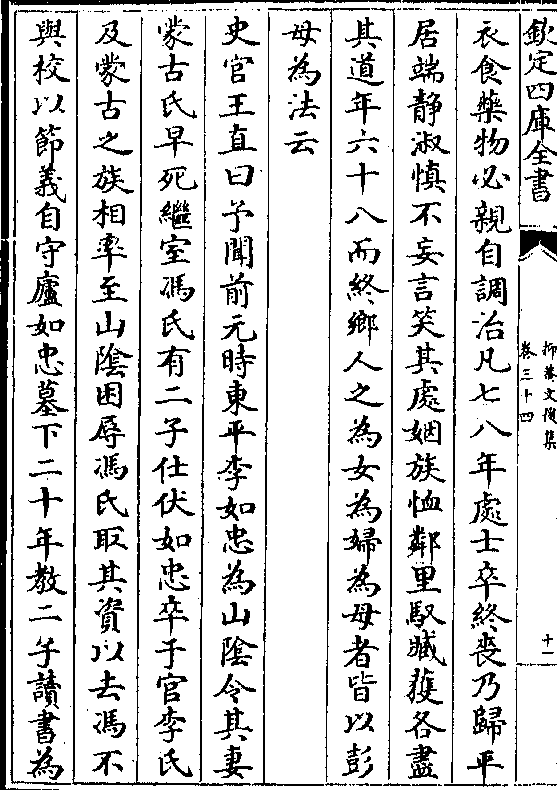 欽定四庫全書
抑菴文後集
卷三十四
十一
衣食藥物必親自調治凡七八年處士卒終喪乃歸平
居端靜淑慎不妄言笑其處姻族恤鄰里馭臧獲各盡
其道年六十八而終鄉人之為女為婦為母者皆以彭
母為法云
史官王直曰予聞前元時東平李如忠為山陰令其妻
蒙古氏早死繼室馮氏有二子仕伏如忠卒于官李氏
及蒙古之族相率至山陰困辱馮氏取其資以去馮不
與校以節義自守廬如忠墓下二十年教二子讀書為